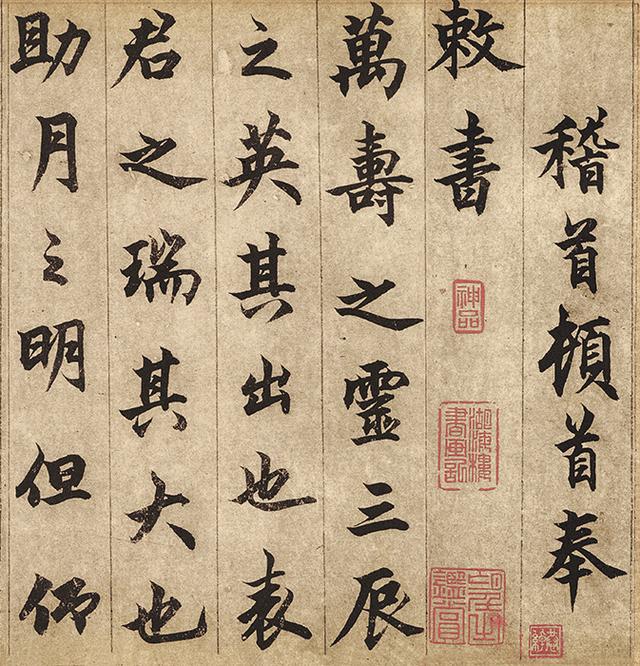 稽首頓首奉
敕書
神品
萬壽之靈三辰
之英其出也表
君之瑞其大也
助月之明但仰